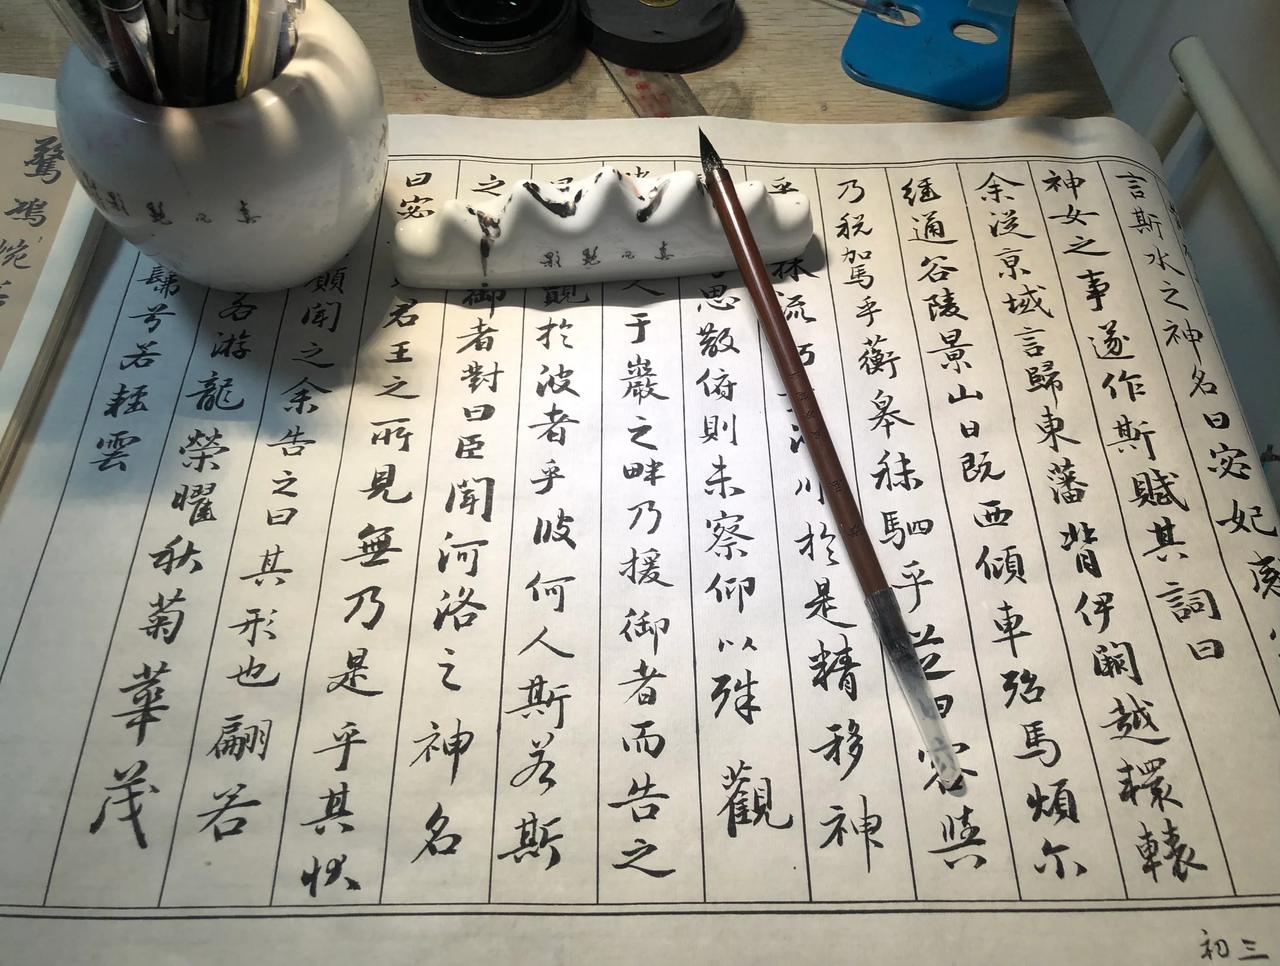 言斯水之神名曰宓妃
神女之事遂作斯賦其詞曰
余從京域言歸東藩背伊闕越轘轅
經通谷陵景山日既西傾車殆馬煩尔
乃税加駕乎蘅皋秣駟乎芝田容與
乎林流川於是精移神
思散俯則未察仰以殊觀
人于巖之畔乃援御者而告之
覿於波者乎彼何人斯若斯
之御者對曰臣聞河洛之神名
曰宓君王之所見無乃是乎其狀
願聞之余告之曰其形也翩若
游龍榮曜秋菊華茂
兮若輕雲
初三